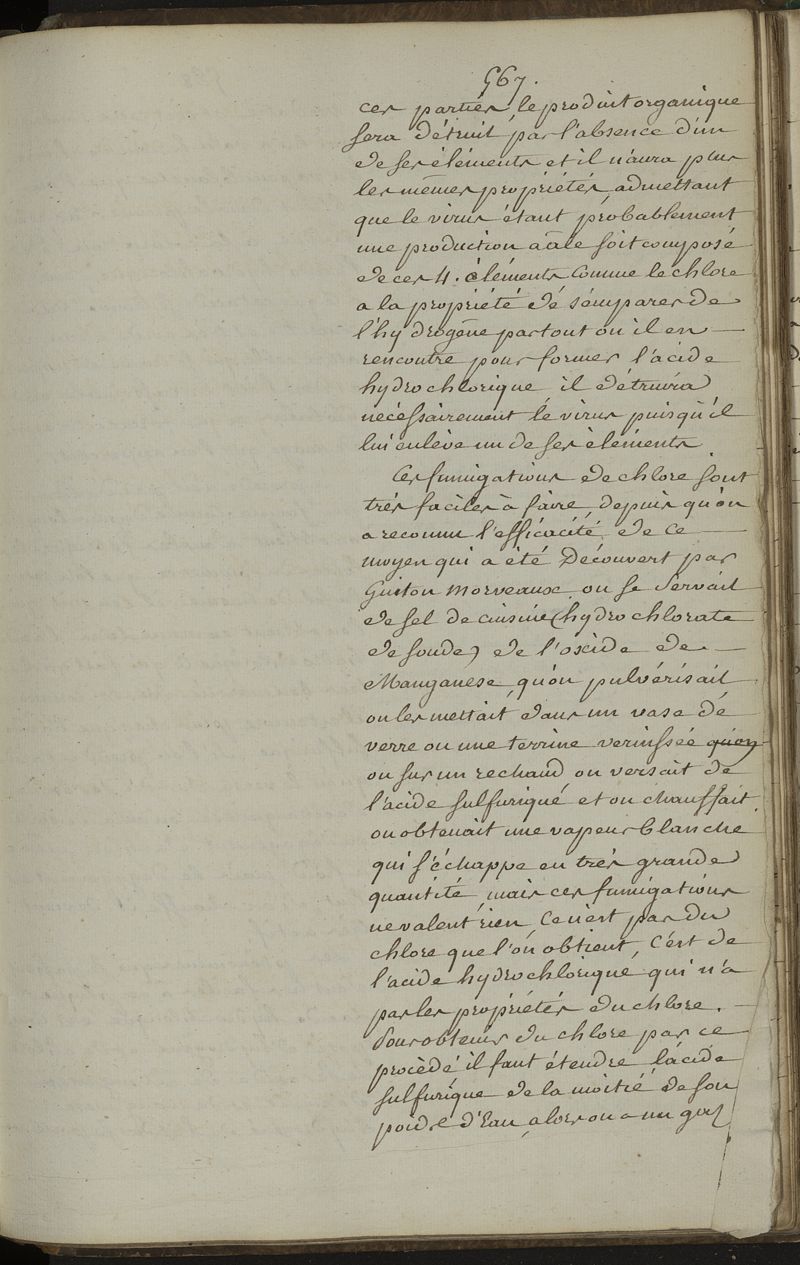 567.
ces parties, le produit organique
sera détruit par l'absence d'un
de ses éléments et il n'aura plus
les mêmes propriétés, admettant
que le virus étant probablement
une production a͞ale soit composé
de ces 4. éléments Comme le chlore
a la propriété de s'emparer de
l'hydrogène partout ou il en
rencontre pour former l'acide
hydrochlorique il détruira
nécessairement le virus puisqu'il
lui enlève un de ses éléments.
Ces fumigations de chlore sont
très faciles à faire, depuis qu'on
a reconnu l'efficacité de ce
moyen qui a été Découvert par
Guiton Morveaux on se servait
de sel de cuisine (hydrochlorate
de soude) de l'oxide de
Manganese, qu'on pulvérisait
on les mettait dans un vase de
verre ou une terrine vernissée qu'on
ou sur un rechaud on versait de
l'acide sulfurique et on chauffait
on obtenait une vapeur blanche
qui s'échappe en très grande
quantité, mais ces fumigations
ne valent rien, Ce n'est pas du
chlore que l'on obtient, C'est de
l'acide hydrochlorique qui n'a
pas les propriétés du chlore.
Pour obtenir du chlore par ce
procédé il faut étendre l'acide
sulfurique de la moitié de son
poids d'Eau, alors on a un gaz